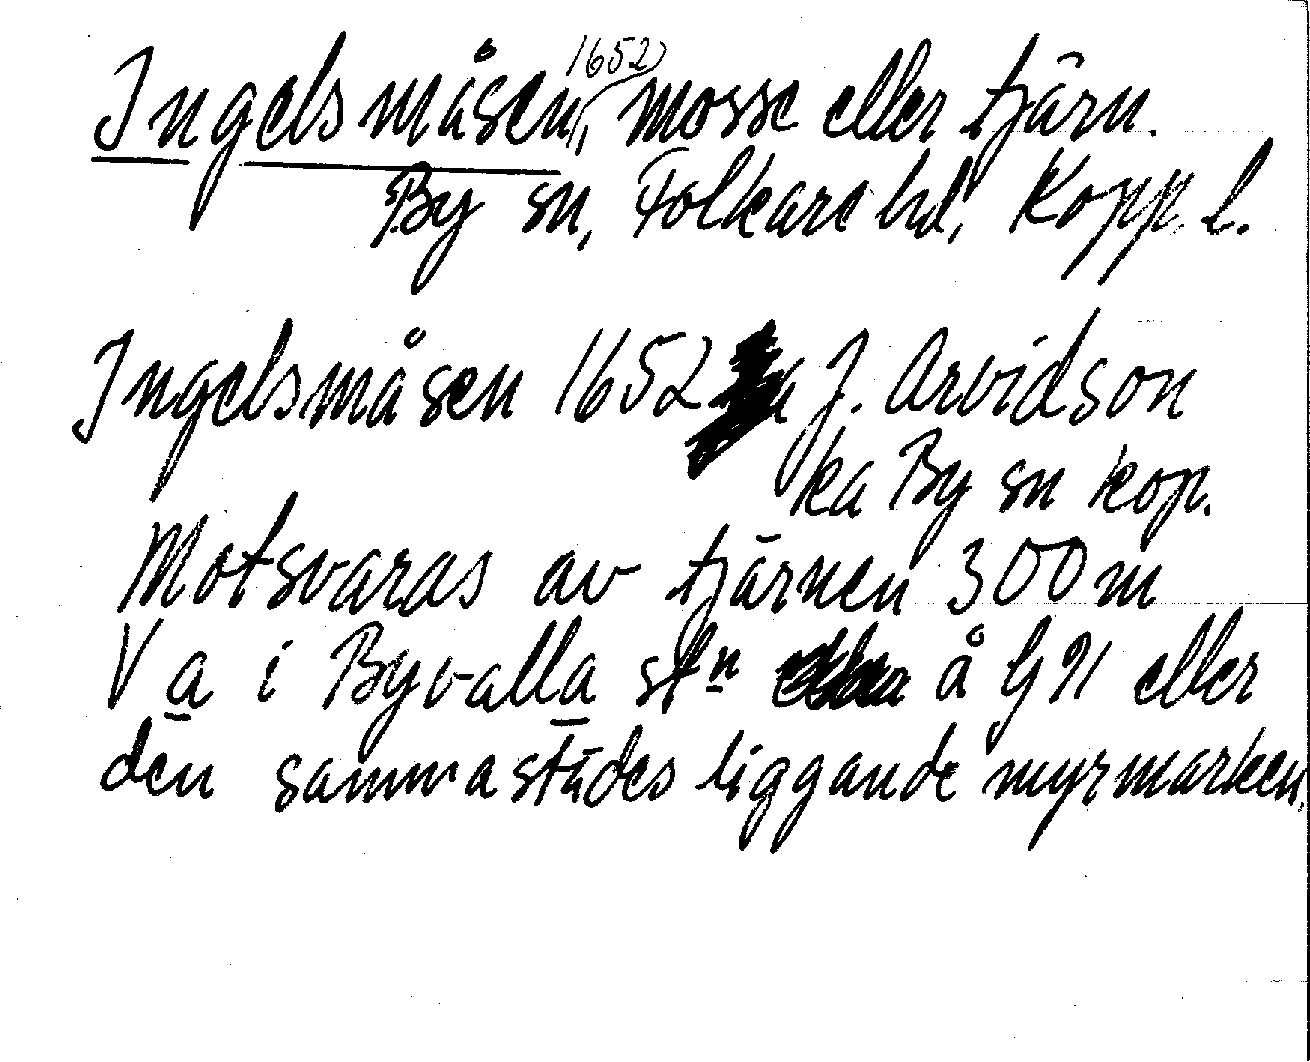 Ingelsmåsen, 1652) mosse eller tjärn.
By sn, Folkare hd, Kopp. l.
Ingelsmåsen 1652 J. Arvidson
ka By sn kop.
Motsvaras av tjärnen 300 m
V a i Byvalla stn å G91 eller
den sammastädes liggande myrmarken.